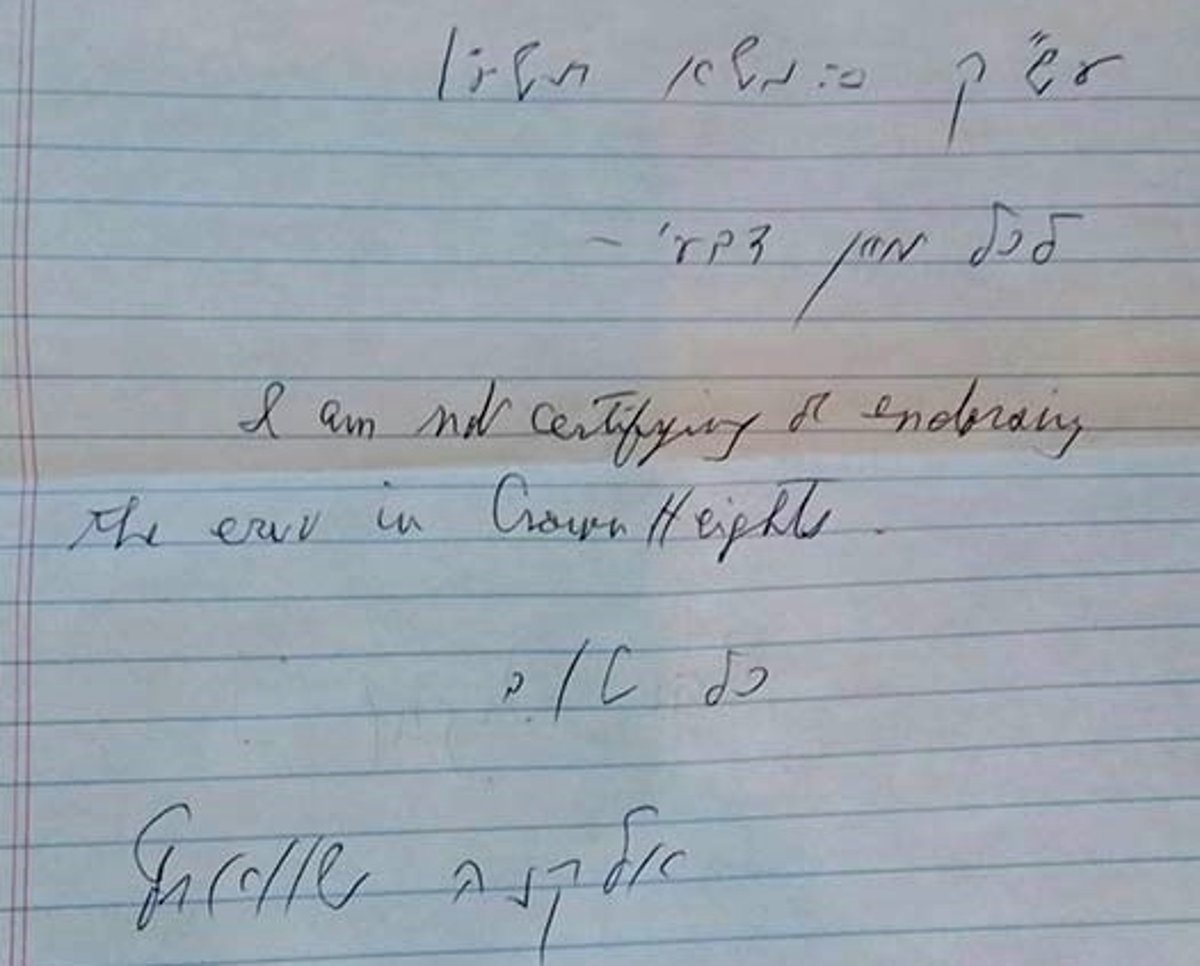 עש״ק פ׳ תשא תשע״ו
לכל מאן דבעי –
I am not certifying or endorsing
the eruv in Crown Heights.
כל טוב
אלקנה